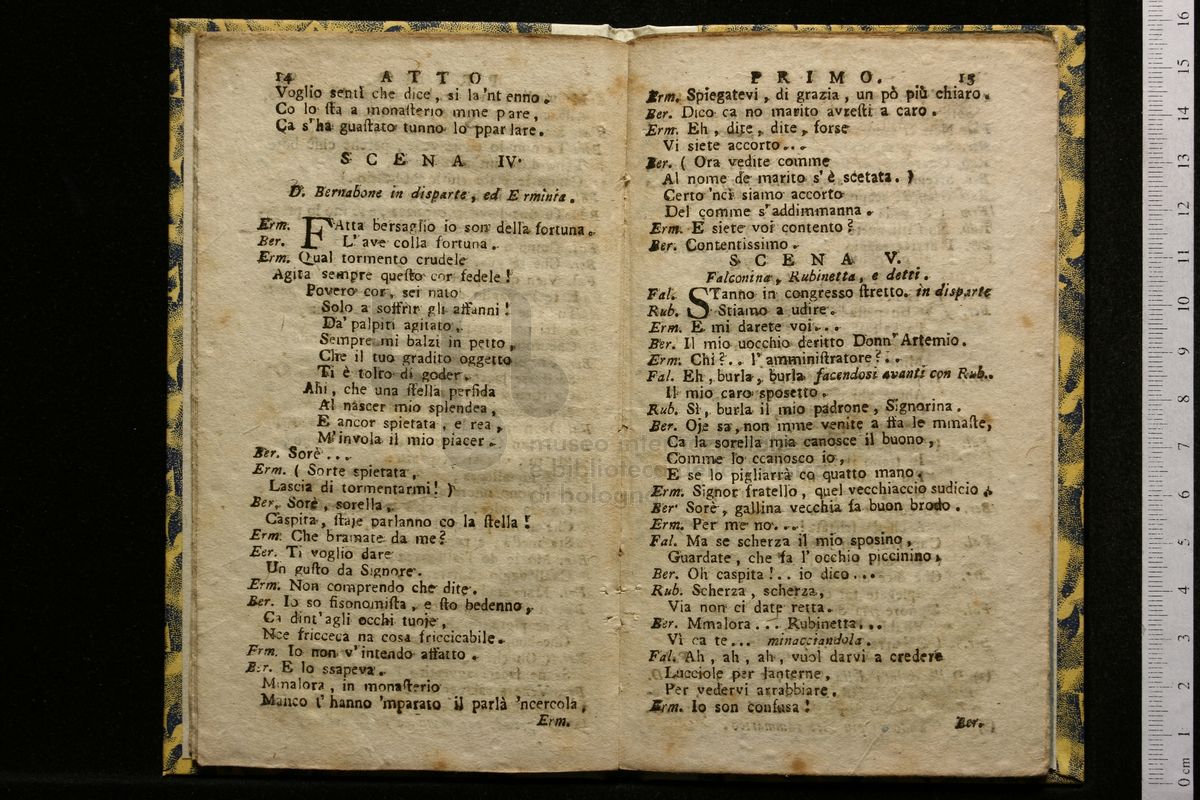 14 ATTO
Voglio sentì che dice, si la 'nt enno.
Co lo sta a monasterio mme pare,
Ca s'ha guastato tunno lo pparlare.
SCENA IV.
D. Bernabone in disparte, ed Erminia.
Erm. FAtta bersaglio io son della fortuna.
Ber. L'ave colla fortuna.
Erm. Qual tormento crudele
Agita sempre questo cor fedele!
Povero cor, sei nato
Solo a soffrir gli affanni!
Da' palpiti agitato,
Sempre mi balzi in petto,
Che il tuo gradito oggetto
Ti è tolto di goder.
Ahi, che una stella perfida
Al nascer mio splendea,
E ancor spietata, e rea,
M'invola il mio piacer.
Ber. Sorè...
Erm. ( Sorte spietata,
Lascia di tormentarmi! )
Ber. Sorè, sorella,
Caspita, staje parlanno co la stella!
Erm. Che bramate da me?
Eer. Ti voglio dare
Un gusto da Signore.
Erm. Non comprendo che dite.
Ber. Io so fisonomista, e sto bedenno,
Ca dint'agli occhi tuoje,
Nce fricceca na cosa friccicabile.
Erm. Io non v'intendo affatto.
Ber. E lo ssapeva.
Mmalora, in monasterio
Manco t'hanno 'mparato il parlà 'ncercola,
Erm.
PRIMO. 15
Erm. Spiegatevi, di grazia, un pò più chiaro.
Ber. Dico ca no marito avresti a caro.
Erm. Eh, dite, dite, forse
Vi siete accorto...
Ber. ( Ora vedite comme
Al nome de marito s'è scetata. )
Certo 'nci siamo accorto
Del comme s'addimmanna.
Erm. E siete voi contento?
Ber. Contentissimo.
SCENA V.
Falconina, Rubinetta, e detti.
Fal. STanno in congresso stretto. in disparte
Rub. Stiamo a udire.
Erm. E mi darete voi...
Ber. Il mio uocchio deritto Donn'Artemio.
Erm. Chi?.. l'amministratore?..
Fal. Eh, burla, burla facendosi avanti con Rub.
Il mio caro sposetto.
Rub. Sì, burla il mio padrone, Signorina.
Ber. Oje sa, non mme venite a ffa le mmaste,
Ca la sorella mia canosce il buono,
Comme lo ccanosco io,
E se lo pigliarrà co quatto mano.
Erm. Signor fratello, quel vecchiaccio sudicio.
Ber. Sorè, gallina vecchia fa buon brodo.
Erm. Per me no...
Fal. Ma se scherza il mio sposino,
Guardate, che fa l'occhio piccinino.
Ber. Oh caspita!.. io dico...
Rub. Scherza, scherza,
Via non ci date retta.
Ber. Mmalora... Rubinetta...
Vì ca te... minacciandola.
Fal. Ah, ah, ah, vuol darvi a credere
Lucciole per lanterne,
Per vedervi arrabbiare.
Erm. Io son confusa!
Ber.